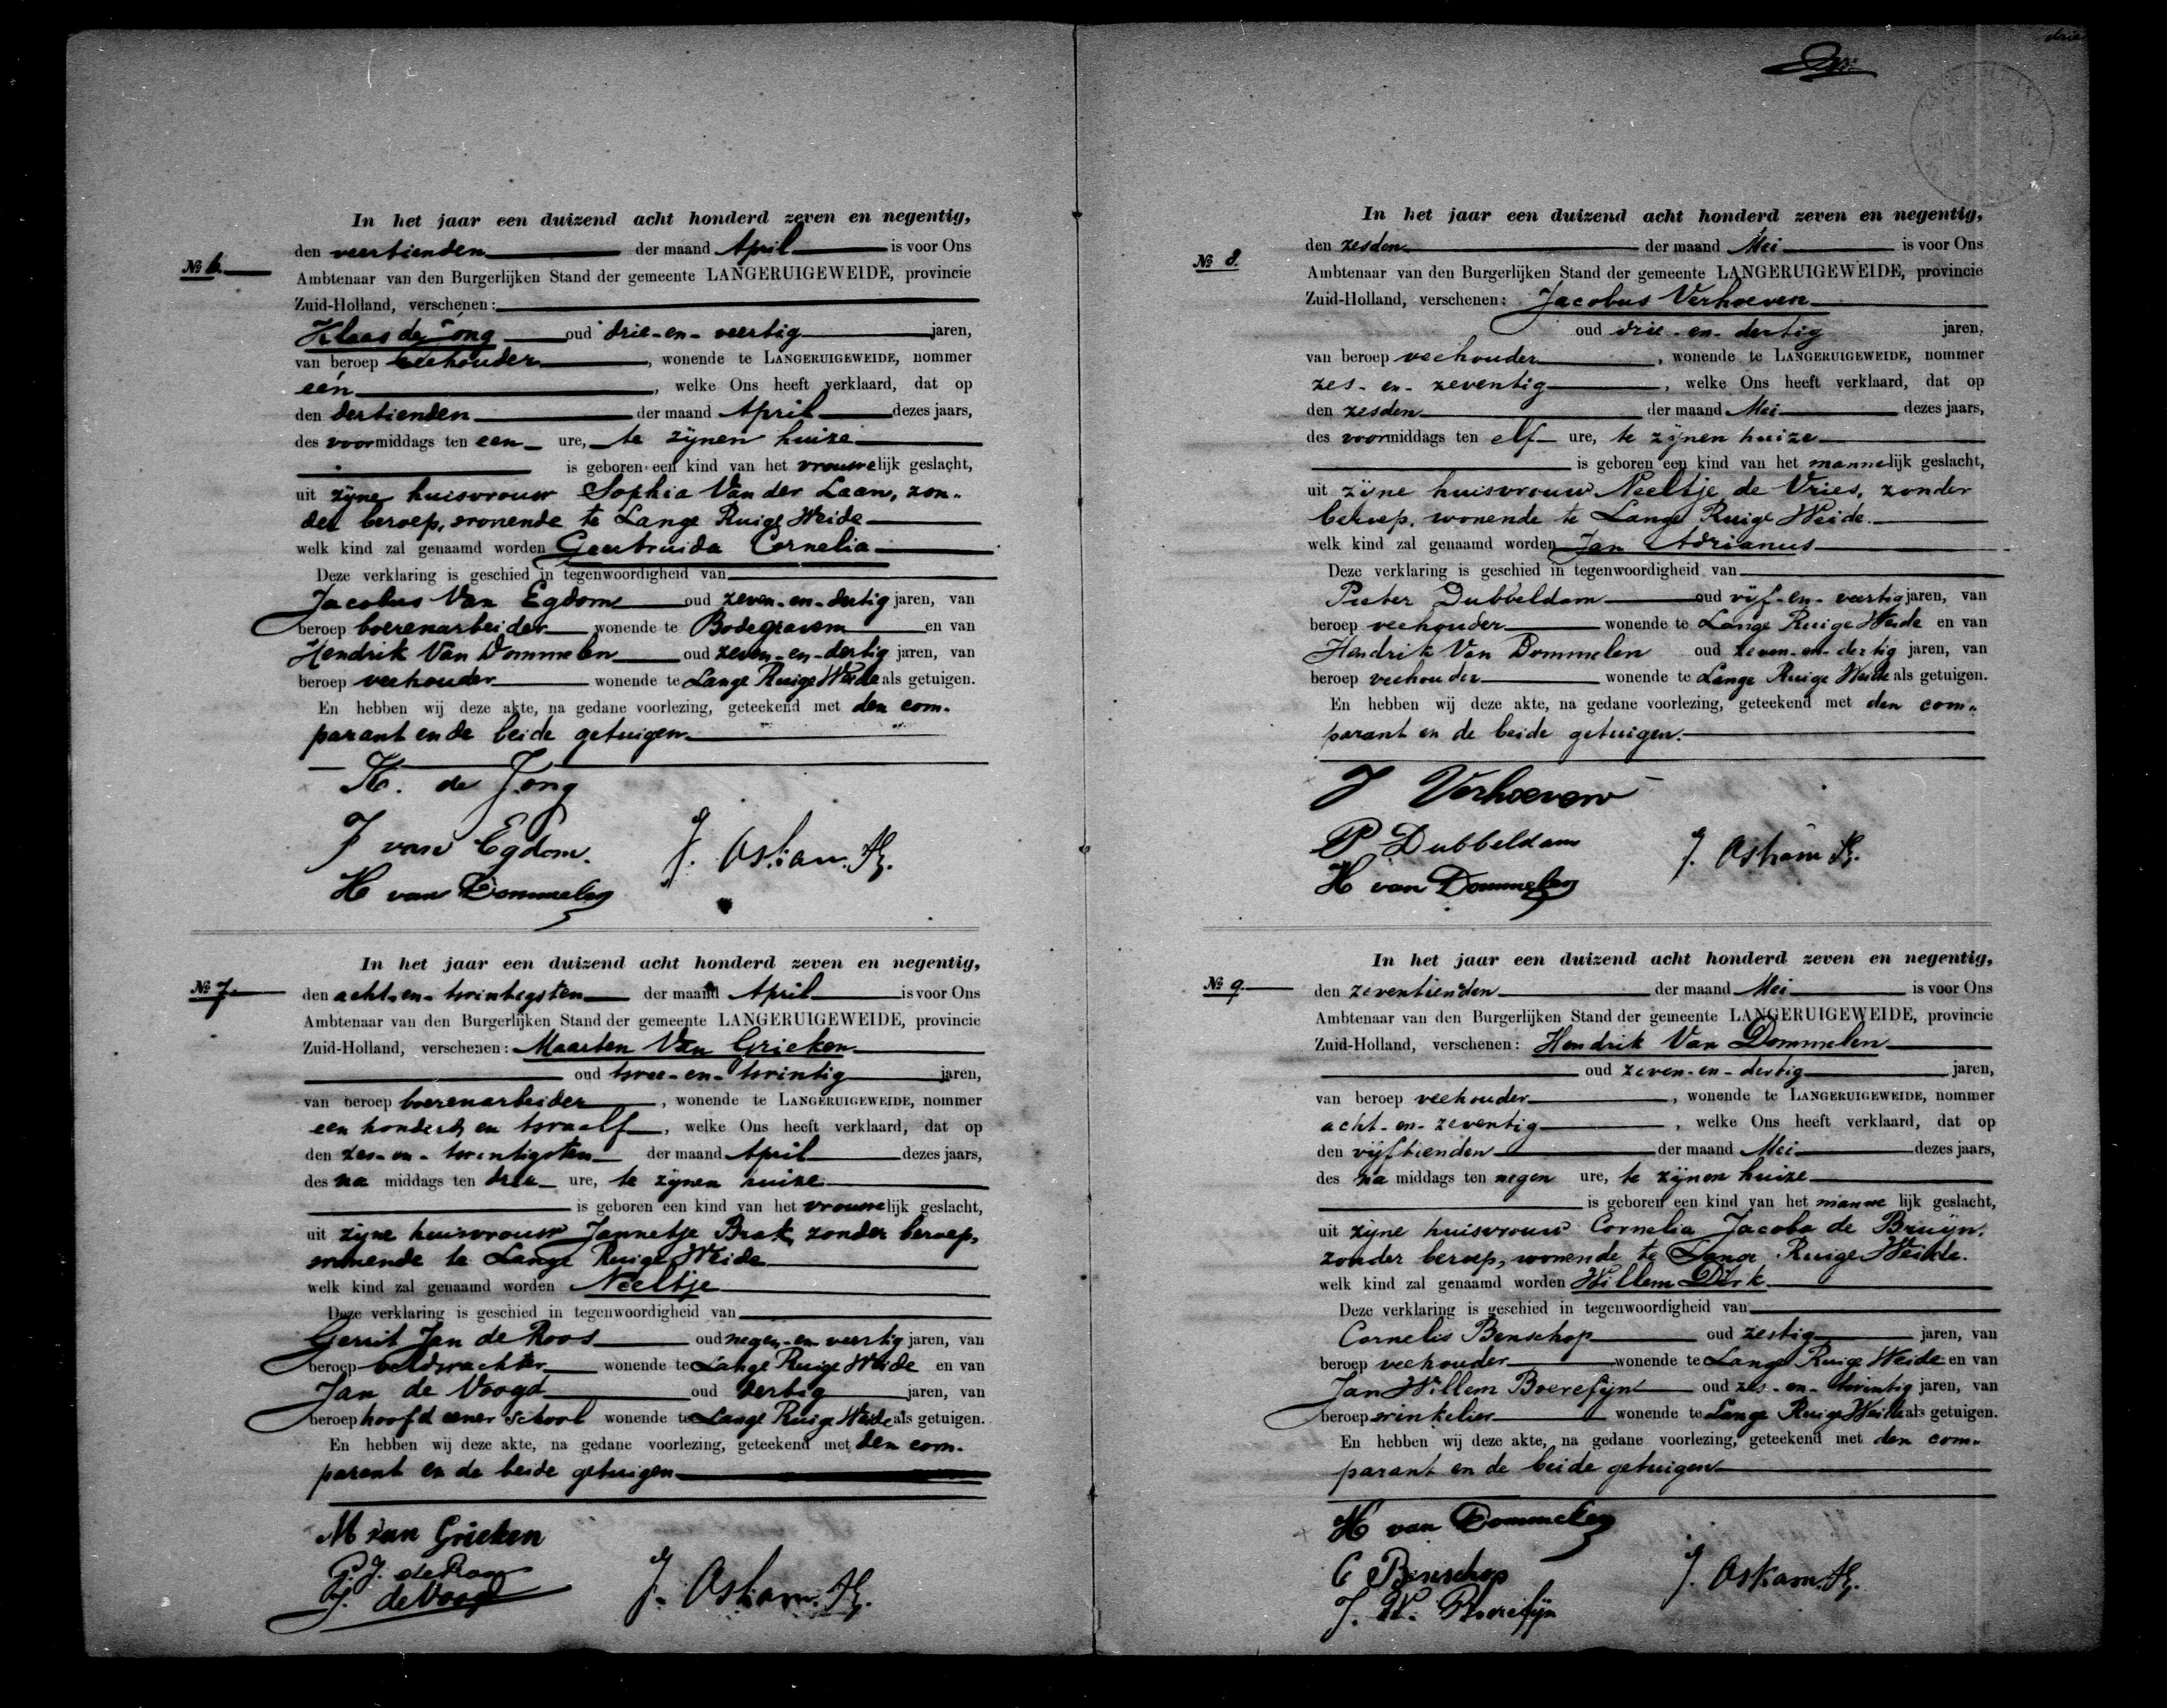 In het jaar een duizend acht honderd zeven en negentig,
No 6.
den veertienden der maand April is voor Ons
Ambtenaar van den Burgerlijken Stand der gemeente LANGERUIGEWEIDE, provincie
Zuid-Holland, verschenen:
Klaas de Jong oud drie-en-veertig jaren,
van beroep veehouder, wonende te LANGERUIGEWEIDE, nommer
één, welke Ons heeft verklaard, dat op
den dertienden der maand April dezes jaars,
des voormiddags ten een ure, te zijnen huize
is geboren een kind van het vrouwelijk geslacht,
uit zijne huisvrouw Sophia Van der Laan, zon-
der beroep, wonende te Lange Ruige Weide
welk kind zal genaamd worden Geertruida Cornelia
Deze verklaring is geschied in tegenwoordigheid van
Jacobus Van Egdom oud zeven-en-dertig jaren, van
beroep boerenarbeider wonende te Bodegraven en van
Hendrik Van Dommelen oud zeven-en-dertig jaren, van
beroep veehouder wonende te Lange Ruige Weide als getuigen.
En hebben wij deze akte, na gedane voorlezing, geteekend met den com-
parant en de beide getuigen.
K. de Jong
J van Egdom.
J. Oskam. Hz.
H van Dommelen
In het jaar een duizend acht honderd zeven en negentig,
No 7.
den acht-en-twintigsten der maand April is voor Ons
Ambtenaar van den Burgerlijken Stand der gemeente LANGERUIGEWEIDE, provincie
Zuid-Holland, verschenen: Maarten Van Grieken
oud twee-en-twintig jaren,
van beroep boerenarbeider, wonende te LANGERUIGEWEIDE, nommer
een honderd en twaalf, welke Ons heeft verklaard, dat op
den zes-en-twintigsten der maand April dezes jaars,
des na middags ten drie ure, te zijnen huize
is geboren een kind van het vrouwelijk geslacht,
uit zijne huisvrouw Jannetje Brak, zonder beroep,
wonende te Lange Ruige Weide
welk kind zal genaamd worden Neeltje
Deze verklaring is geschied in tegenwoordigheid van
Gerrit Jan de Roos oud negen-en-veertig jaren, van
beroep veldwachter wonende te Lange Ruige Weide en van
Jan de Voogd oud dertig jaren, van
beroep hoofd eener school wonende te Lange Ruige Weide als getuigen.
En hebben wij deze akte, na gedane voorlezing, geteekend met den com-
parant en de beide getuigen
M van Grieken
G. J. de Roos
J. de Voogd
J. Oskam. Hz.
drie
In het jaar een duizend acht honderd zeven en negentig,
No 8.
den zesden der maand Mei is voor Ons
Ambtenaar van den Burgerlijken Stand der gemeente LANGERUIGEWEIDE, provincie
Zuid-Holland, verschenen: Jacobus Verhoeven
oud drie-en-dertig jaren,
van beroep veehouder, wonende te LANGERUIGEWEIDE, nommer
zes-en-zeventig, welke Ons heeft verklaard, dat op
den zesden der maand Mei dezes jaars,
des voormiddags ten elf ure, te zijnen huize
is geboren een kind van het mannelijk geslacht,
uit zijne huisvrouw Neeltje de Vries, zonder
beroep, wonende te Lange Ruige Weide.
welk kind zal genaamd worden Jan Adrianus
Deze verklaring is geschied in tegenwoordigheid van
Pieter Dubbeldam oud vijf-en-veertig jaren, van
beroep veehouder wonende te Lange Ruige Weide en van
Hendrik Van Dommelen oud zeven-en-dertig jaren, van
beroep veehouder wonende te Lange Ruige Weide als getuigen.
En hebben wij deze akte, na gedane voorlezing, geteekend met den com-
parant en de beide getuigen.
J Verhoeven
P Dubbeldam
J. Oskam Hz.
H van Dommelen
In het jaar een duizend acht honderd zeven en negentig,
No 9.
den zeventienden der maand Mei is voor Ons
Ambtenaar van den Burgerlijken Stand der gemeente LANGERUIGEWEIDE, provincie
Zuid-Holland, verschenen: Hendrik Van Dommelen
oud zeven-en-dertig jaren,
van beroep veehouder, wonende te LANGERUIGEWEIDE, nommer
acht-en-zeventig, welke Ons heeft verklaard, dat op
den vijftienden der maand Mei dezes jaars,
des na middags ten negen ure, te zijnen huize
is geboren een kind van het manne lijk geslacht,
uit zijne huisvrouw Cornelia Jacoba de Bruijn,
zonder beroep, wonende te Lange Ruige Weide.
welk kind zal genaamd worden Willem Dirk
Deze verklaring is geschied in tegenwoordigheid van
Cornelis Benschop oud zestig jaren, van
beroep veehouder wonende te Lange Ruige Weide en van
Jan Willem Boerefijn oud zes-en-twintig jaren, van
beroep winkelier wonende te Lange Ruige Weide als getuigen.
En hebben wij deze akte, na gedane voorlezing, geteekend met den com-
parant en de beide getuigen
H van Dommelen
C Benschop
J. Oskam. Hz.
J. W. Boerefijn